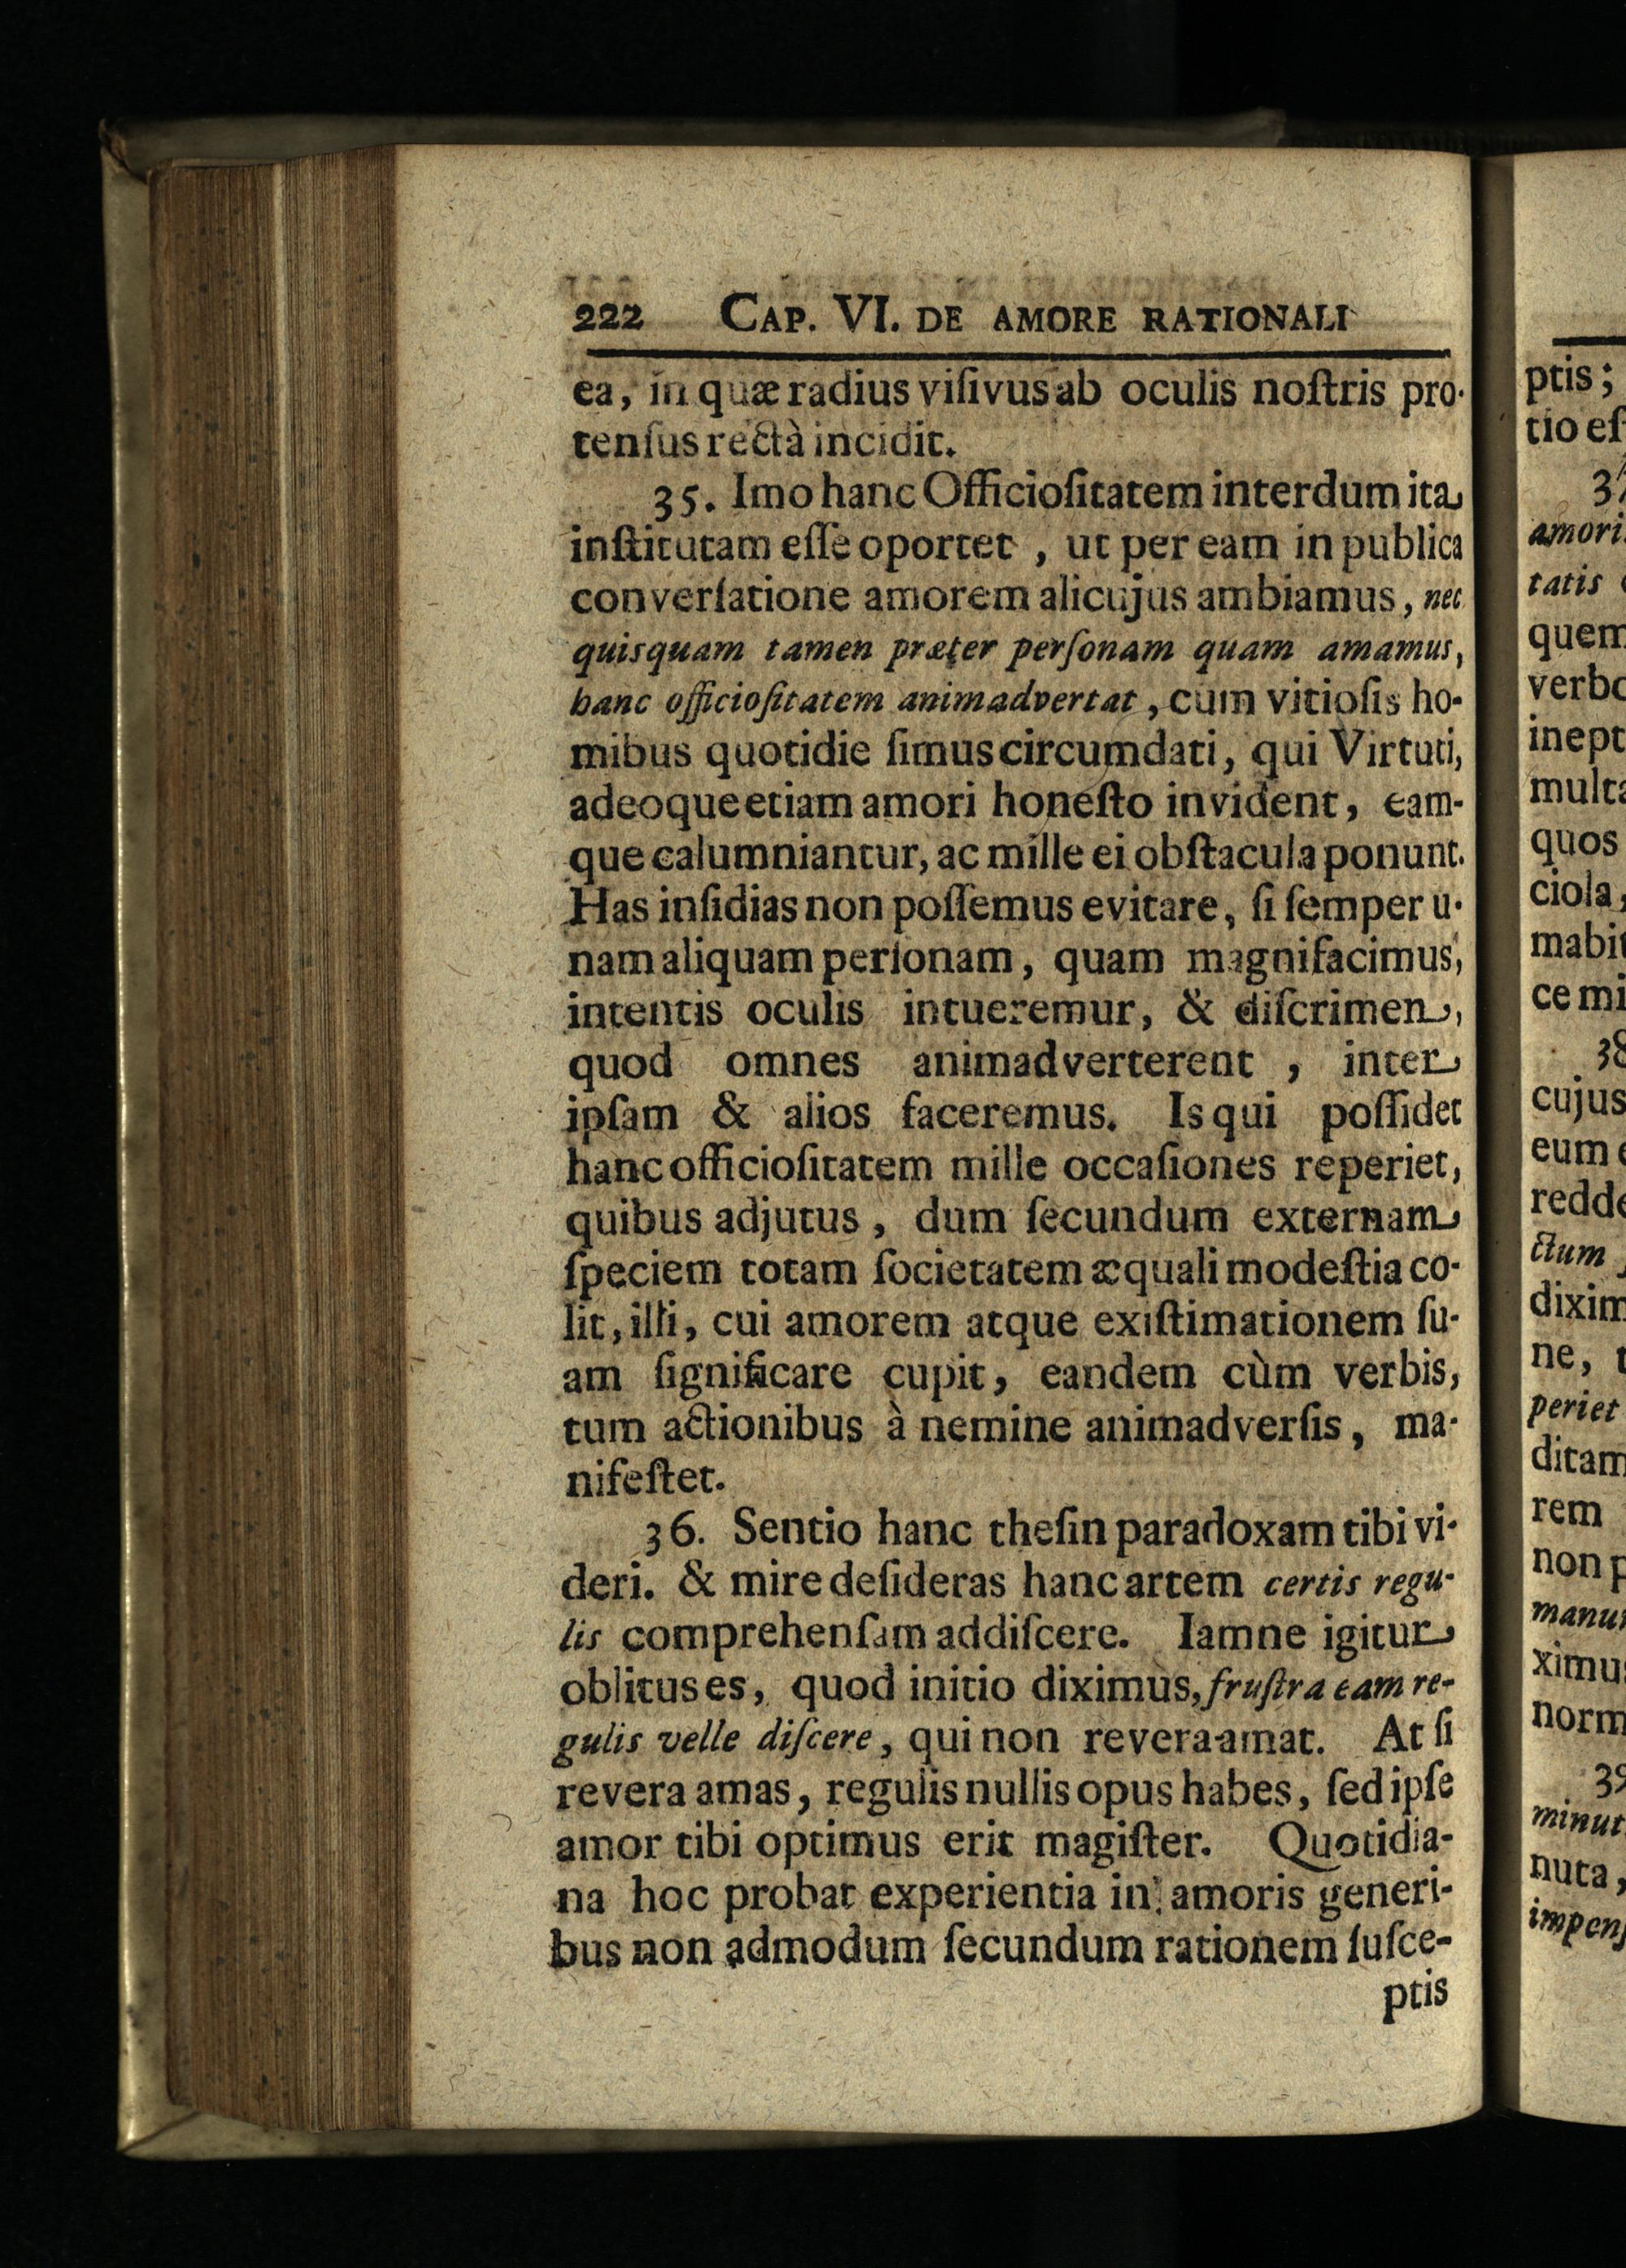 222 CAP. VI. DE AMORE RATIONALI
ea, in quæ radius viſivus ab oculis noſtris pro-
tenſus rectà incidit.
35. Imo hanc Officioſitatem interdum ita
inſtitutam eſſe oportet , ut per eam in publica
converſatione amorem alicujus ambiamus, nec
quisquam tamen præter perſonam quam amamus,
hanc officioſitatem animadvertat, cum vitioſis ho-
mibus quotidie ſimus circumdati, qui Virtuti,
adeoque etiam amori honeſto invident, eam-
que calumniantur, ac mille ei obſtacula ponunt.
Has inſidias non poſſemus evitare, ſi ſemper u-
nam aliquam perſonam, quam magnifacimus,
intentis oculis intueremur, & diſcrimen,
quod omnes animadverterent , inter
ipſam & alios faceremus. Is qui poſſidet
hanc officioſitatem mille occaſiones reperiet,
quibus adjutus, dum ſecundum externam
ſpeciem totam ſocietatem æquali modeſtia co-
lit, illi, cui amorem atque exiſtimationem ſu-
am ſignificare cupit, eandem cùm verbis,
tum actionibus à nemine animadverſis, ma-
nifeſtet.
36. Sentio hanc theſin paradoxam tibi vi-
deri. & mire deſideras hanc artem certis regu-
lis comprehenſam addiſcere. Iamne igitur
oblitus es, quod initio diximus, fruſtra eam re-
gulis velle diſcere, qui non revera amat. At ſi
revera amas, regulis nullis opus habes, ſed ipſe
amor tibi optimus erit magiſter. Quotidia-
na hoc probat experientia in amoris generi-
bus non admodum ſecundum rationem ſuſce-
ptis
ptis;
tio eſ
37
amori
tatis
quem
verbo
inept
multa
quos
ciola,
mabit
ce mi
38
cujus
eum
redde
ctum
dixim
ne,
periet
ditam
rem
non p
manu
ximus
norm
39
minut
nuta,
impenſ